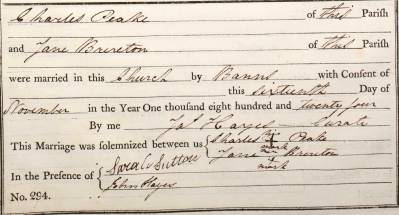 Charles Peake of this Parish
and Jane Brereton of this Parish
were married in this Church by Banns with Consent of
this Sixteenth Day of
November in the Year One thousand eight hundred and twenty four
By me Jas Hayes Curate
This Marriage was solemnized between us Charles his X mark Peake
Jane her X mark Brereton
In the Presence of Sarah Sutton
John Hayes
No. 294.